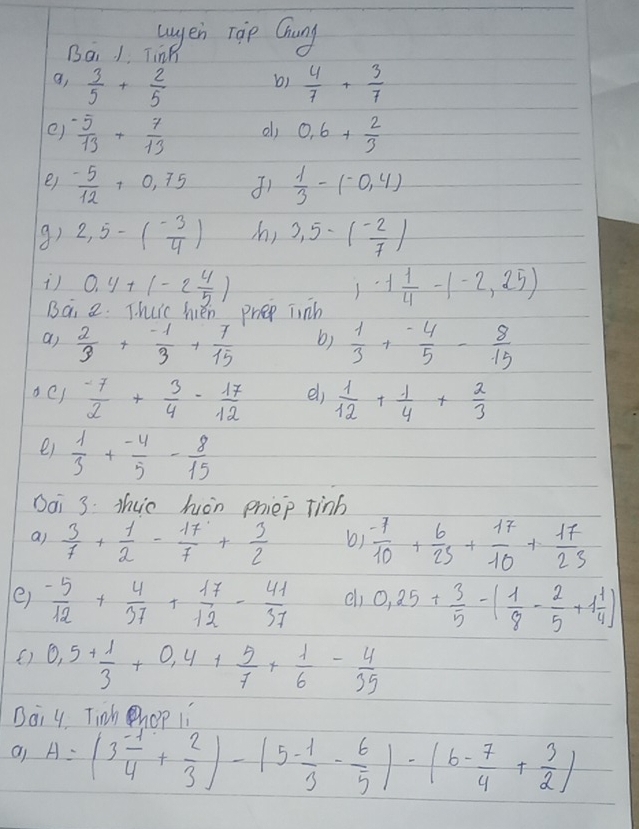 Luyện Tập Chung
Bài 1. Tính
a, 3/5 + 2/5 b) 4/7 + 3/7
c) -5/13 + 7/13 d) 0,6 + 2/3
e) -5/12 + 0,75 f) 1/3 - (-0,4)
g) 2,5 - (-3/4) h, 3,5 - (-2/7)
i) 0,4 + (-2 4/5) ; -1 1/4 - (-2,25)
Bài 2: Thực hiện phép Tính
a) 2/3 + -1/3 + 7/15 b) 1/3 + -4/5 - 8/15
c) -7/2 + 3/4 - 17/12 d) 1/12 + 1/4 + 2/3
e) 1/3 + -4/5 - 8/15
Bài 3: thực hiện phiép Tính
a) 3/7 + 1/2 - 17/7 + 3/2 b) -7/10 + 6/23 + 17/10 + 17/23
c) -5/12 + 4/37 + 17/12 - 41/37 d) 0,25 + 3/5 - (1/8 - 2/5 + 1 1/4)
f) 0,5 + 1/3 + 0,4 + 5/7 + 1/6 - 4/35
Bài 4. Tính hợp lí
a) A = (3 -1/4 + 2/3) - (5 - 1/3 - 6/5) - (6 - 7/4 + 3/2)